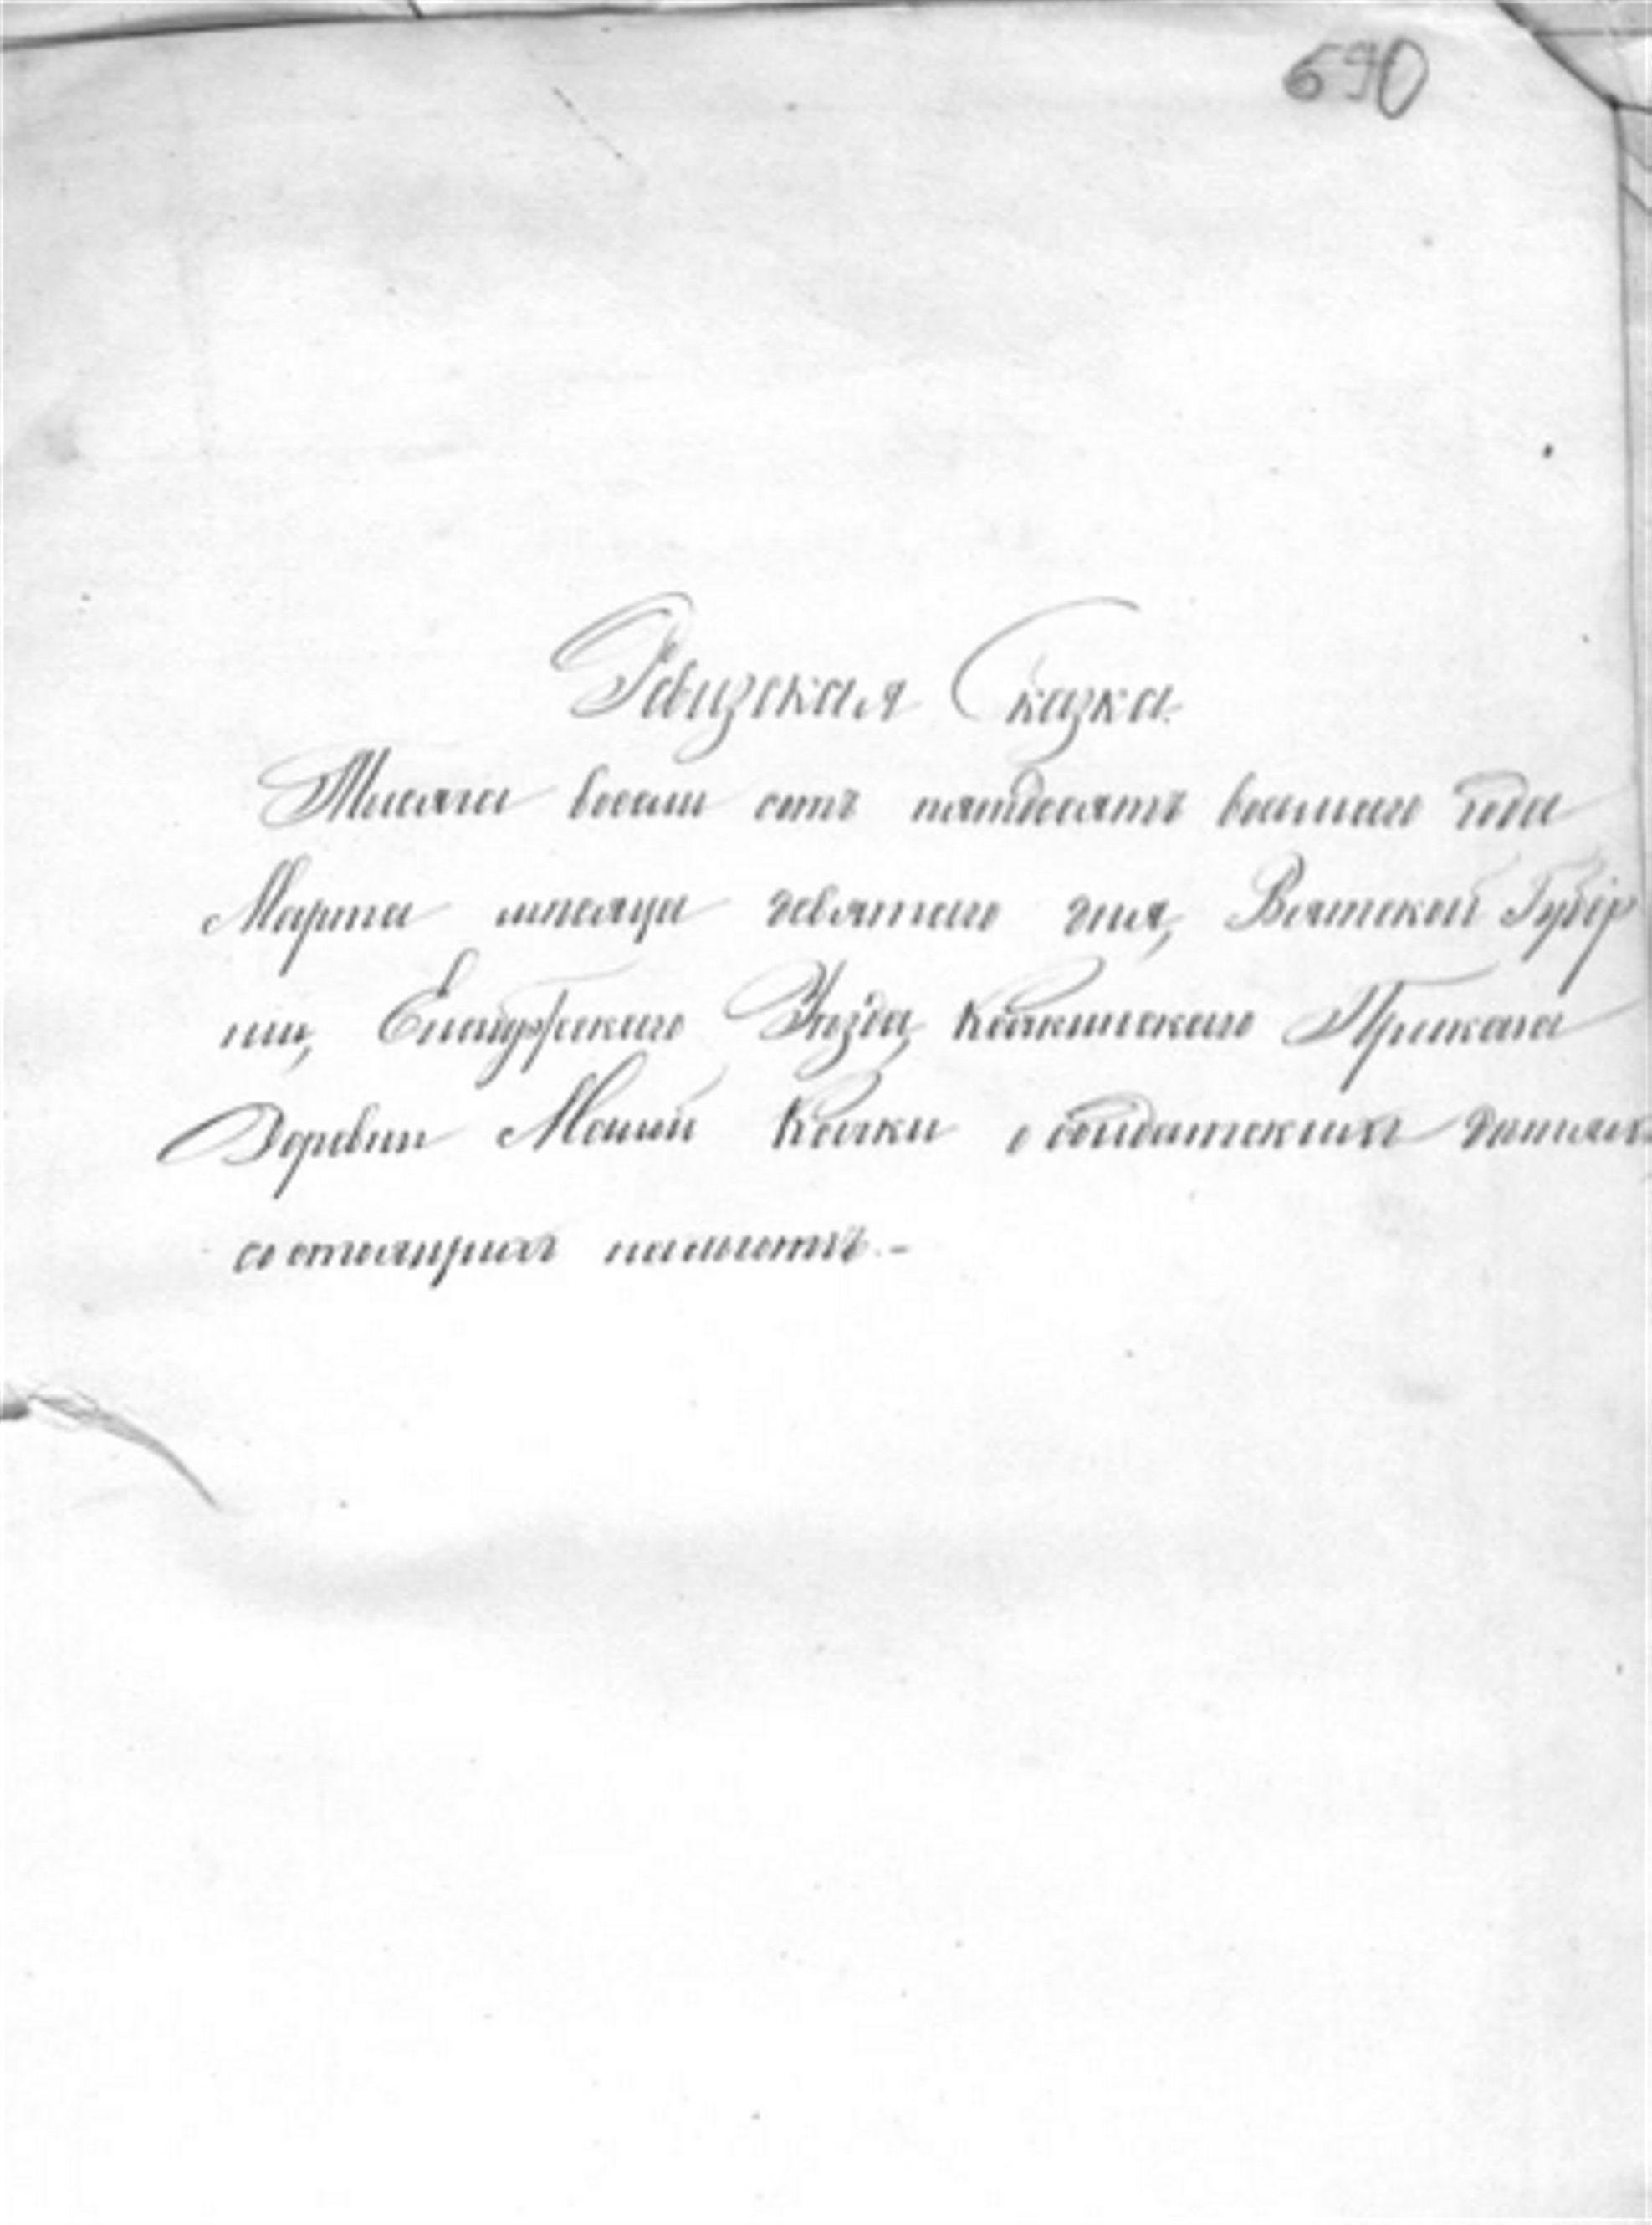 690
Ревизская Сказка.
Тысяча восемь сотъ пятдесятъ восьмаго года
Марта мѣсяца девятаго дня, Вятской Губер
ніи, Елабужскаго Уѣзда, Кокшинскаго Приказа
Деревни Малой Кокши о солдатскихъ дѣтяхъ
состоящихъ